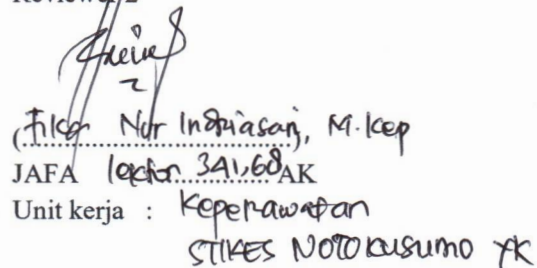 Reviewer 2
(Fika Nur Indriasari, M.Kep
JAFA lektor 341,68 AK
Unit kerja : Keperawatan
STIKES NOTOKUSUMO YK